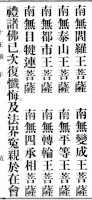 南無閻羅王菩薩 南無變成王菩薩
南無泰山王菩薩 南無平等王菩薩
南無都市王菩薩 南無轉輪王菩薩
南無目犍連菩薩 南無四承 菩薩
禮諸佛已次復懺悔及法界冤親於在會
五